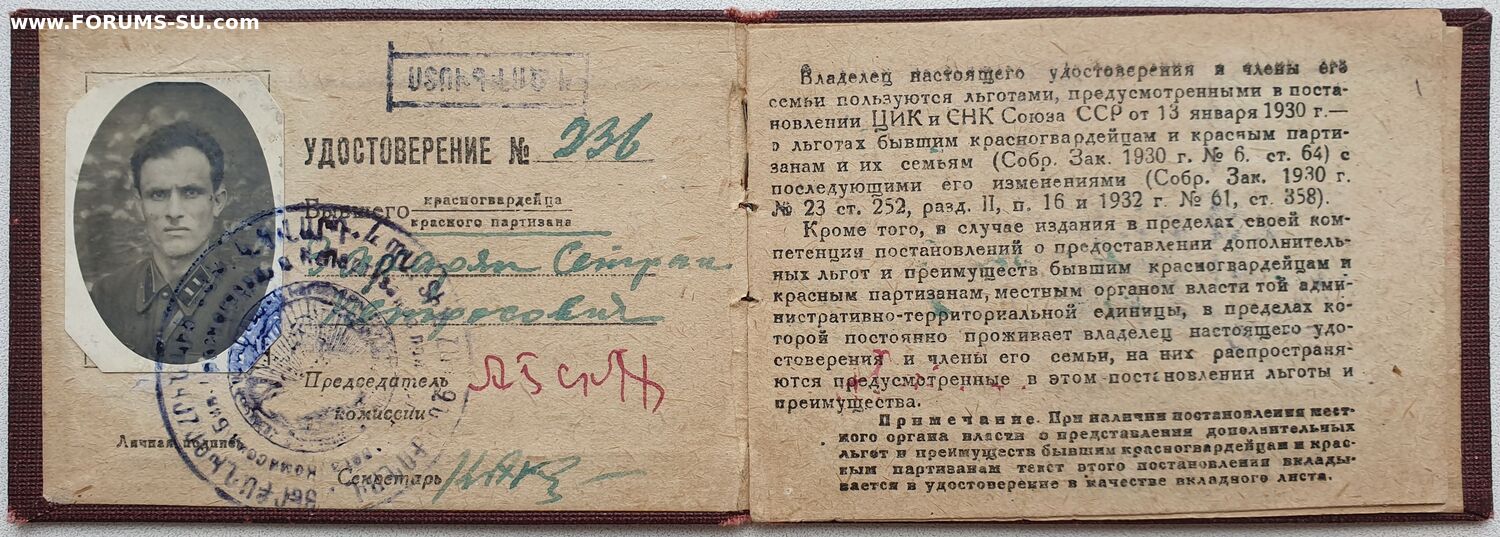 www.FORUMS-SU.com
УДОСТОВЕРЕНИЕ № 236
Бывшего красногвардейца
красного партизана
Сетрак
Петросович
Председатель
комиссии
Личная подпись
Секретарь
Владелец настоящего удостоверения и члены его
семьи пользуются льготами, предусмотренными в поста-
новлении ЦИК и СНК Союза ССР от 13 января 1930 г.—
о льготах бывшим красногвардейцам и красным парти-
занам и их семьям (Собр. Зак. 1930 г. № 6. ст. 64) с
последующими его изменениями (Собр. Зак. 1930 г.
№ 23 ст. 252, разд. II, п. 16 и 1932 г. № 61, ст. 358).
Кроме того, в случае издания в пределах своей ком-
петенции постановлений о предоставлении дополнитель-
ных льгот и преимуществ бывшим красногвардейцам и
красным партизанам, местным органом власти той адми-
нистративно-территориальной единицы, в пределах ко-
торой постоянно проживает владелец настоящего удо-
стоверения и члены его семьи, на них распространя-
ются предусмотренные в этом постановлении льготы и
преимущества.
Примечание. При наличии постановления мест-
ного органа власти о представления дополнительных
льгот и преимуществ бывшим красногвардейцам и крас-
ным партизанам текст этого постановления вклады-
вается в удостоверение в качестве вкладного листа.